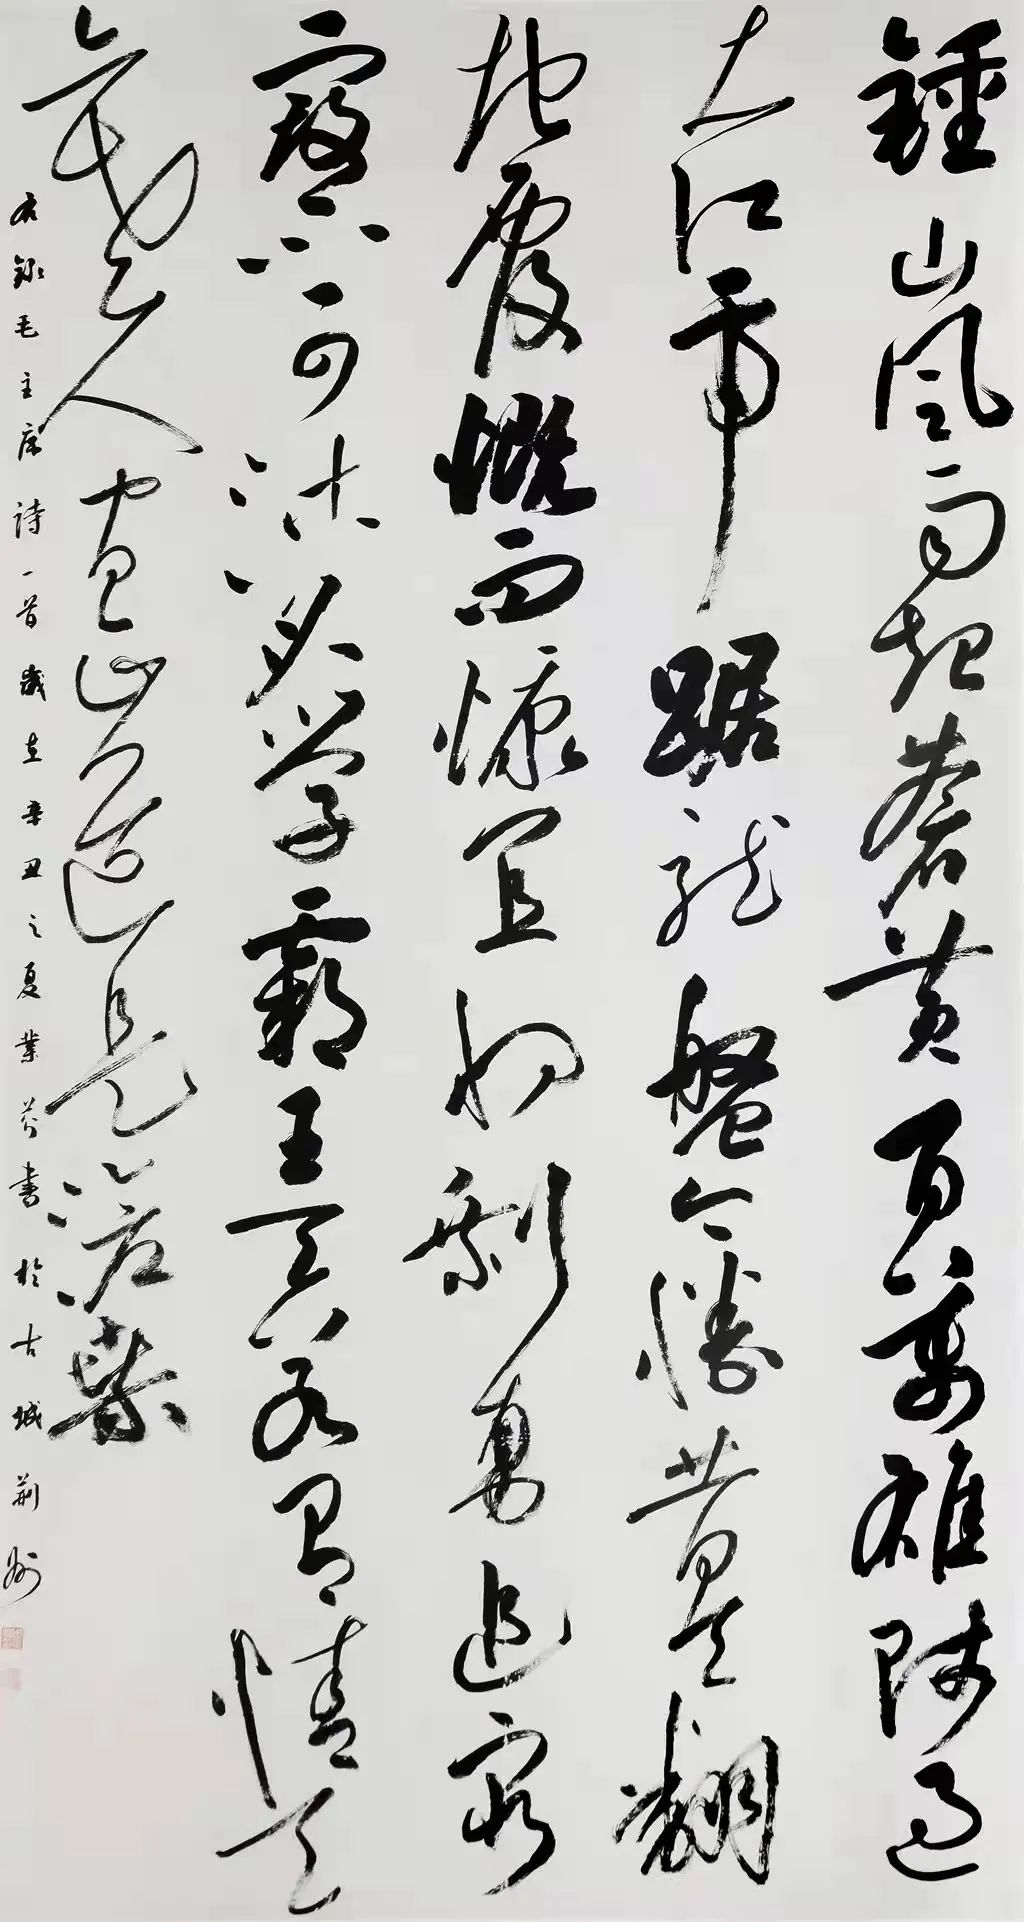 鍾山風雨起蒼黃百萬雄師過
大江虎踞龍盤今勝昔天翻
地覆慨而慷宜將剩勇追窮
寇不可沽名學霸王天若有情天
亦老人間正道是滄桑
右錄毛主席詩一首歲在辛丑之夏業書於古城荊州